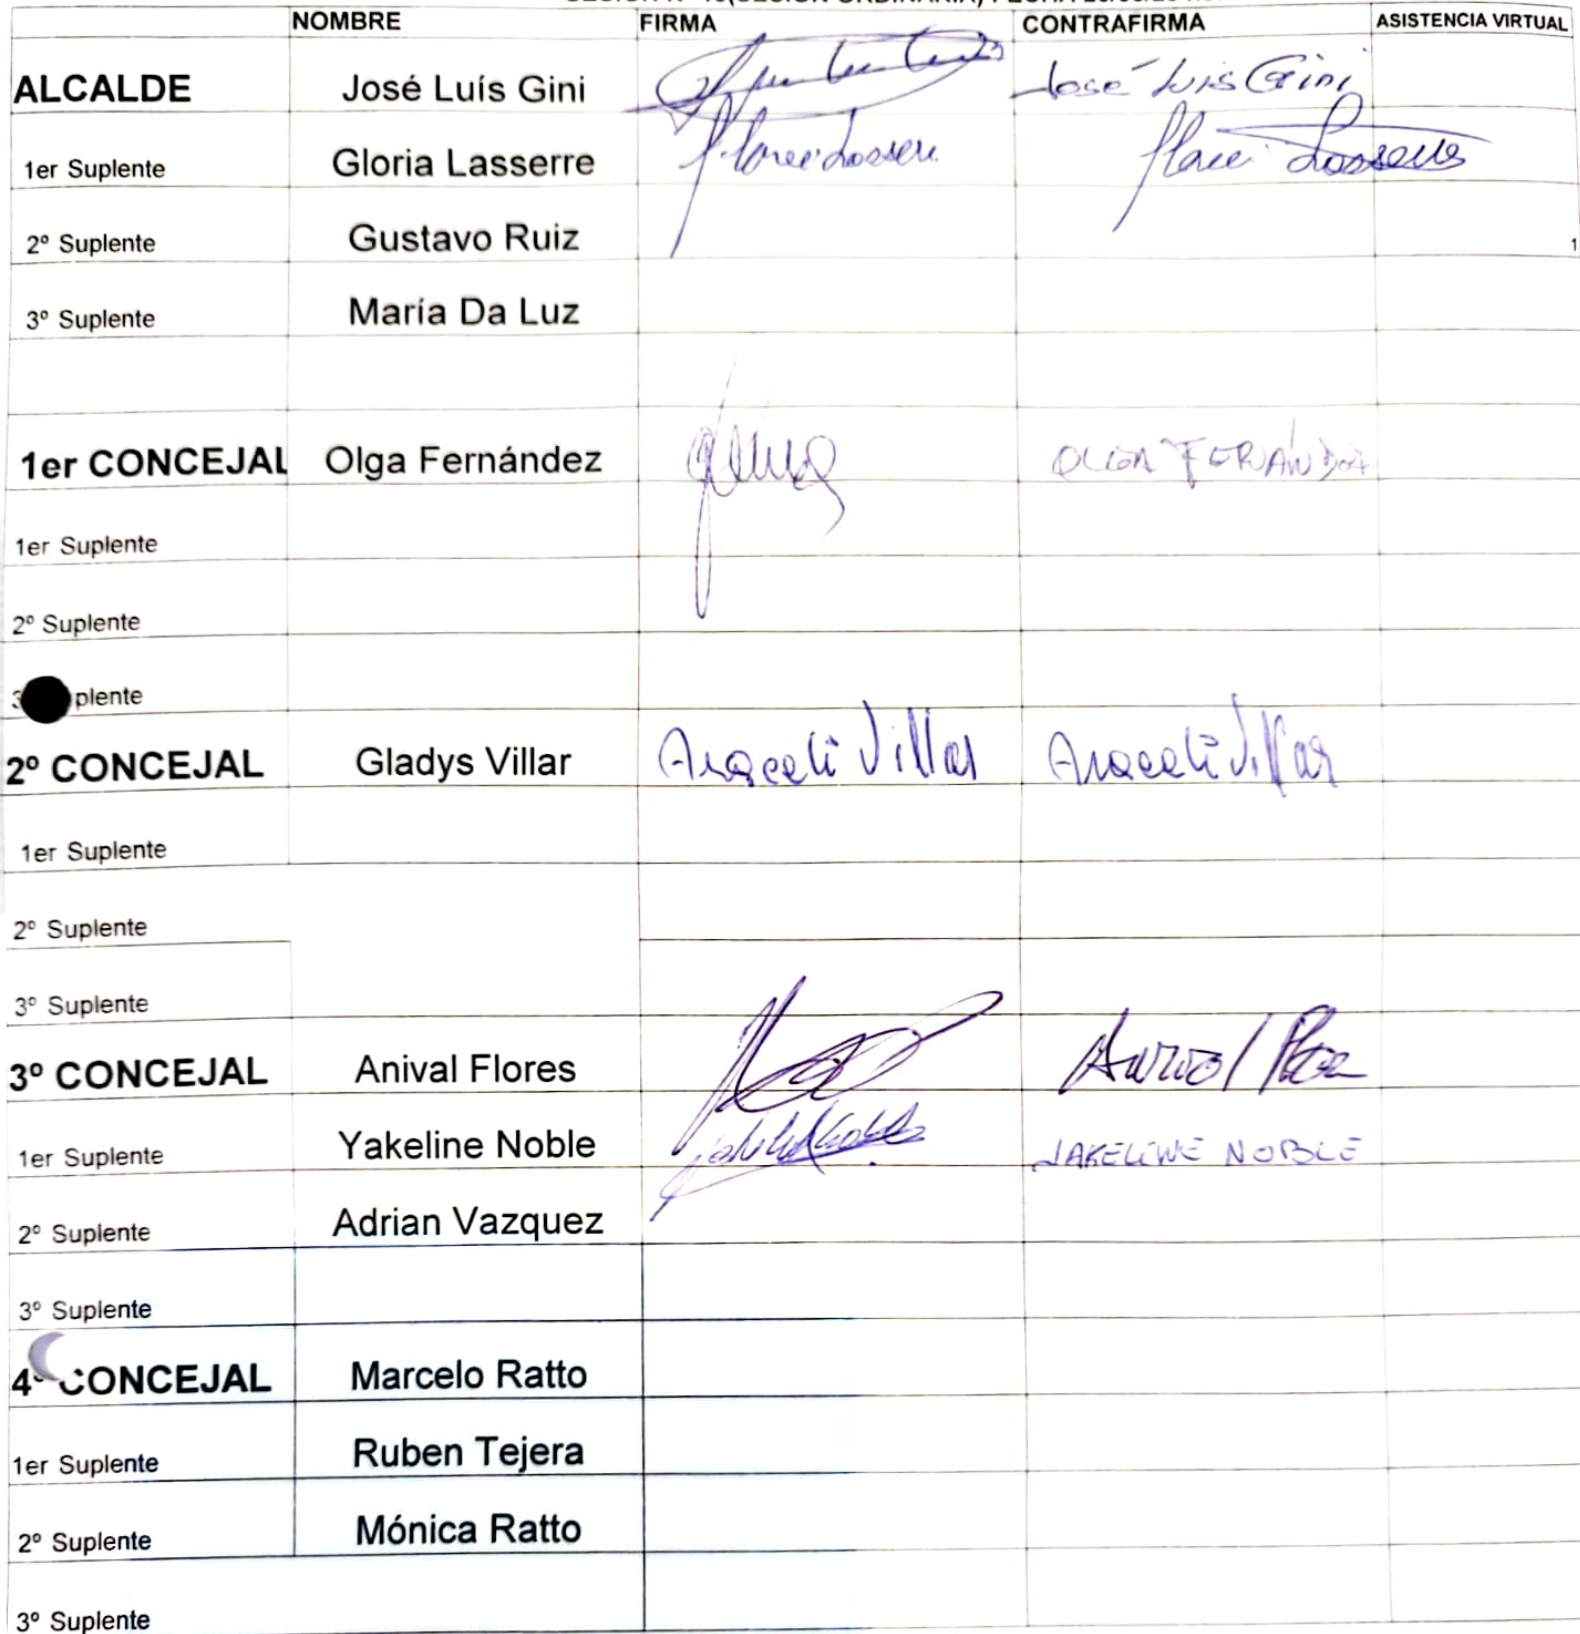 NOMBRE FIRMA CONTRAFIRMA ASISTENCIA VIRTUAL
ALCALDE José Luís Gini José Luis Gini
1er Suplente Gloria Lasserre
2º Suplente Gustavo Ruiz 1
3º Suplente María Da Luz
1er CONCEJAL Olga Fernández OLGA FERNÁNDEZ
1er Suplente
2º Suplente
plente
2º CONCEJAL Gladys Villar Araceli Villar Araceli Villar
1er Suplente
2º Suplente
3º Suplente
3º CONCEJAL Anival Flores
1er Suplente Yakeline Noble JAKELINE NOBLE
2º Suplente Adrian Vazquez
3º Suplente
4º CONCEJAL Marcelo Ratto
1er Suplente Ruben Tejera
2º Suplente Mónica Ratto
3º Suplente